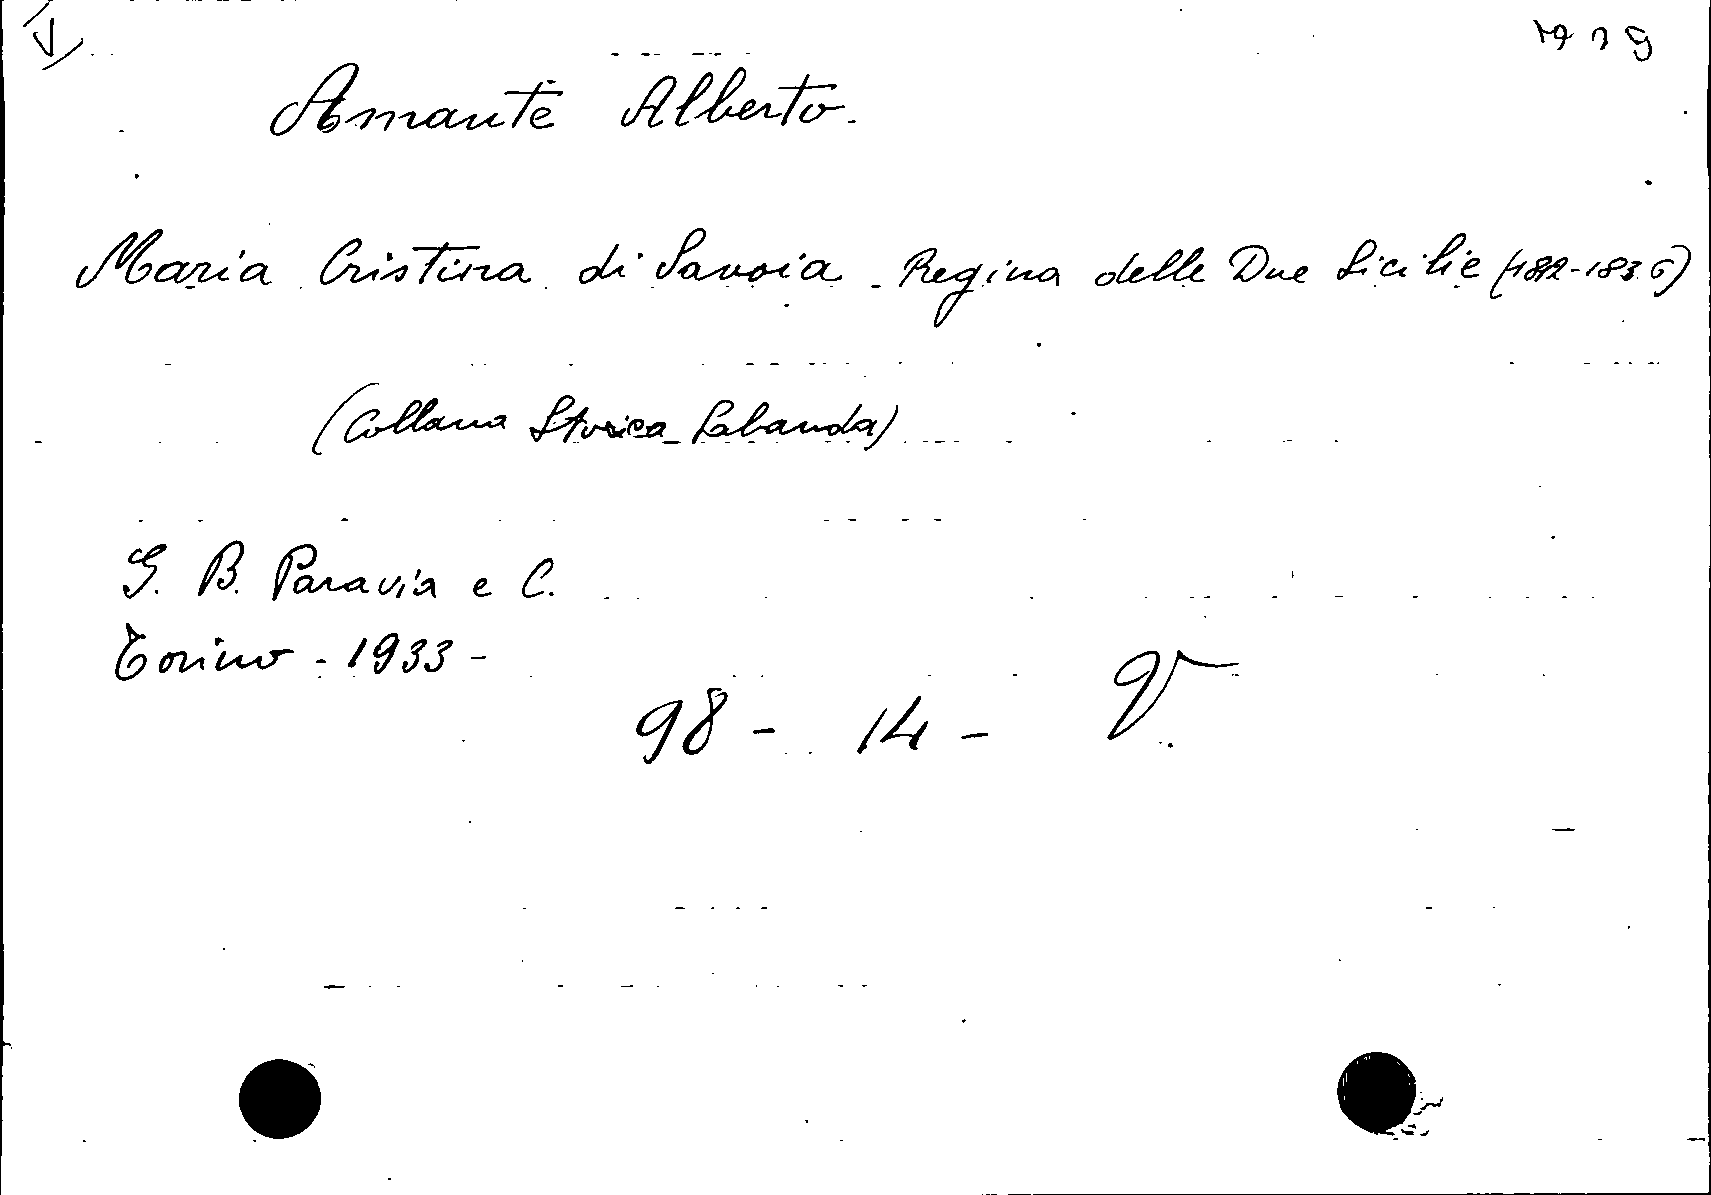 Amante Alberto.
Maria Cristina di Savoia - Regina delle Due Sicilie (1812-1836)
(Collana Storica Sabauda)
G. B. Paravia e C.
Torino - 1933 -
98 - 14 -